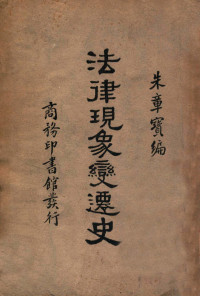 朱章寶編
法律現象變遷史
商務印書館發行